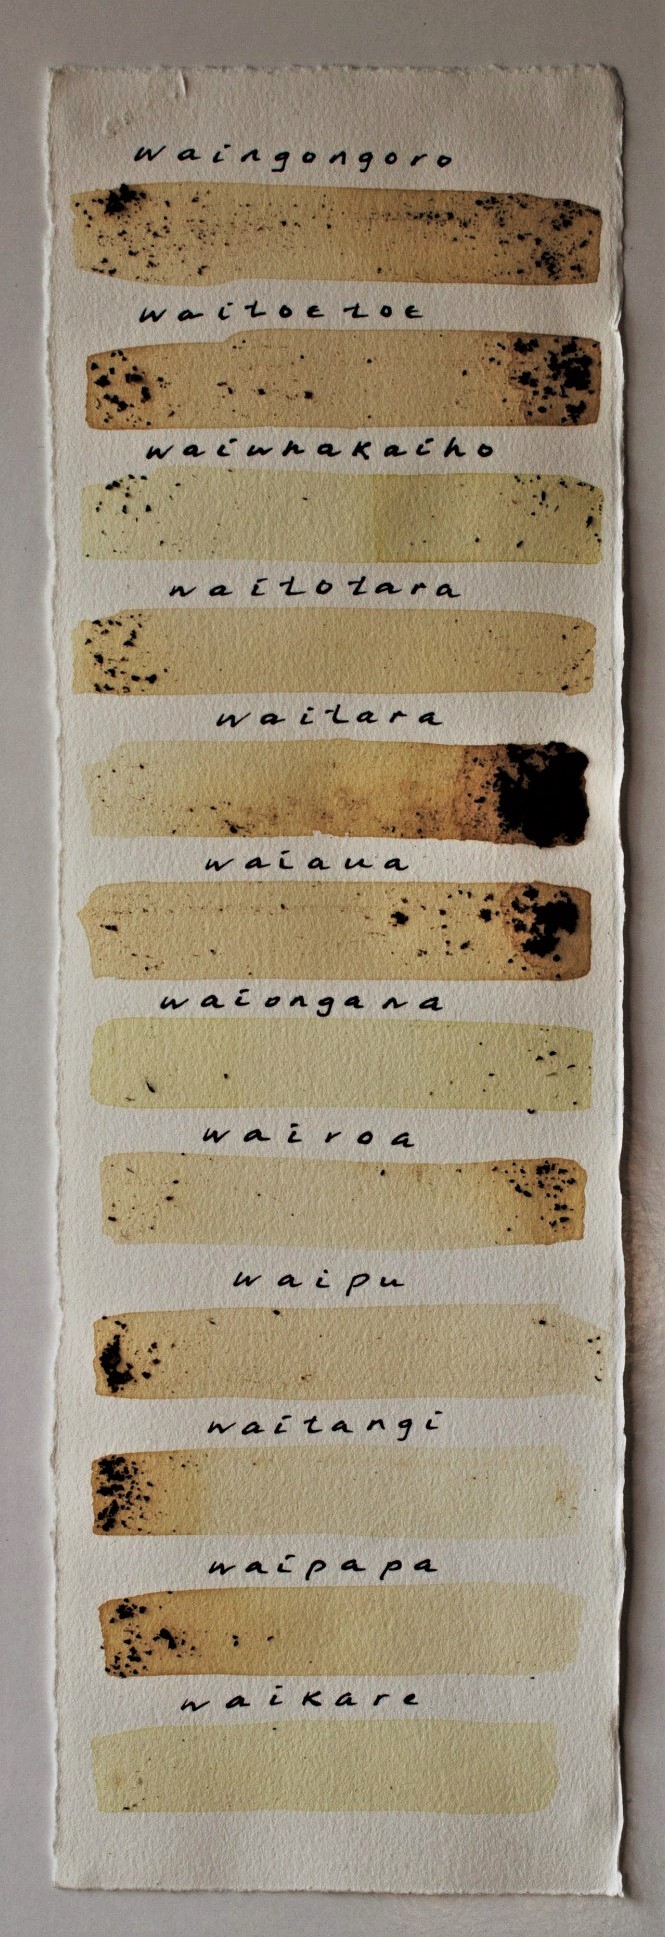 waingongoro
waitoetoe
waiwhakaiho
waitotara
waitara
waiaua
waiongana
wairoa
waipu
waitangi
waipapa
waikare